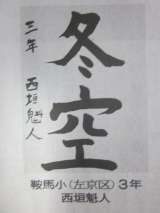 冬空
三年 西垣魁人
鞍馬小(左京区)3年
西垣魁人